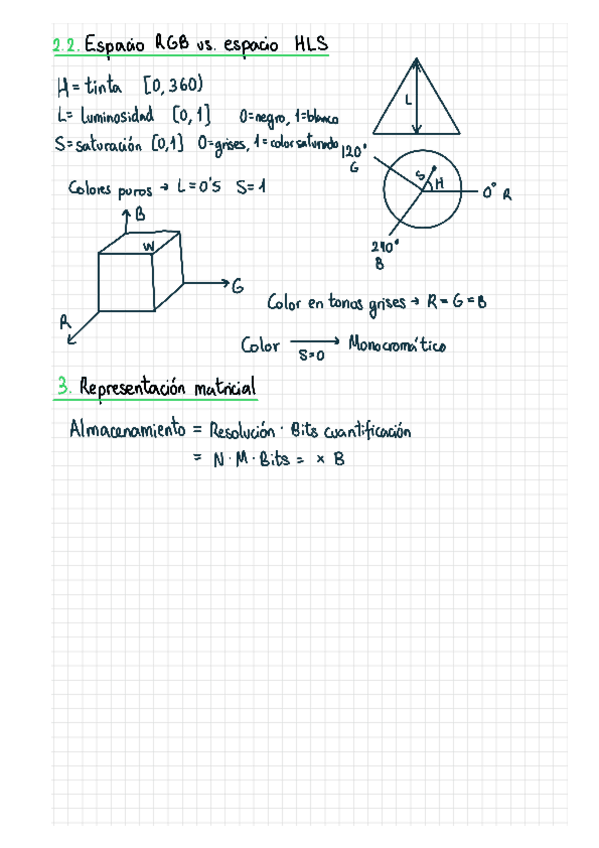 2.2. Espacio RGB vs. espacio HLS
H = tinta [0, 360)
L = Luminosidad [0, 1] 0=negro, 1=blanco
S = saturación [0,1] 0=grises, 1=color saturado
L
120°
G
S
H
0° R
240°
B
Colores puros → L=0'5 S=1
B
W
G
R
Color en tonos grises → R = G = B
Color → Monocromático
S=0
3. Representación matricial
Almacenamiento = Resolución · Bits cuantificación
= N · M · Bits = x B